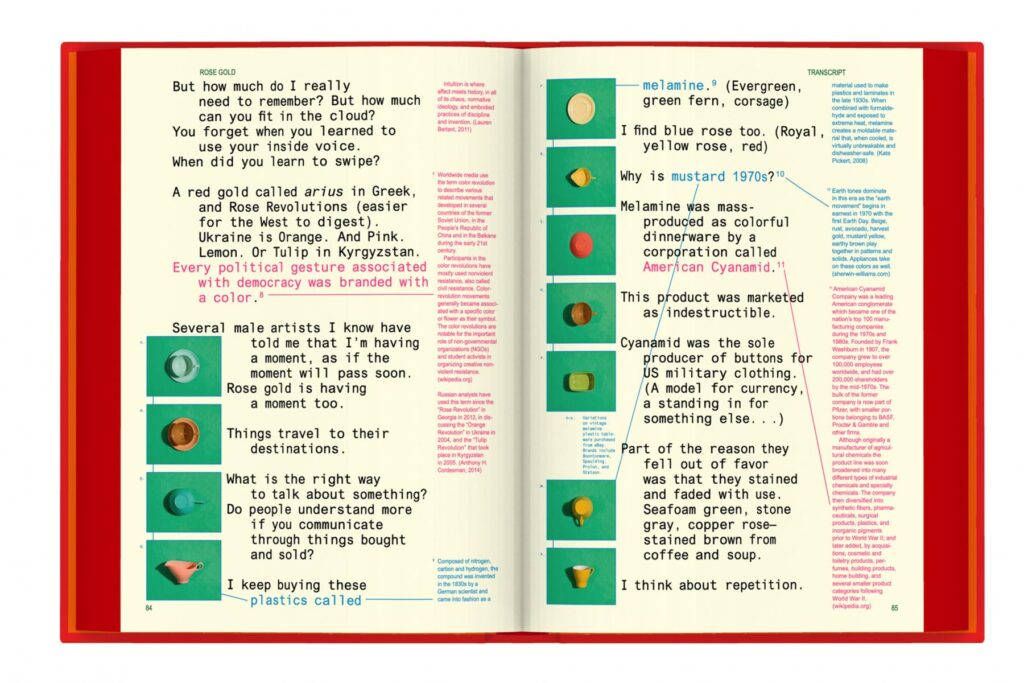 ROSE GOLD
But how much do I really
need to remember? But how much
can you fit in the cloud?
You forget when you learned to
use your inside voice.
When did you learn to swipe?
A red gold called arius in Greek,
and Rose Revolutions (easier
for the West to digest).
Ukraine is Orange. And Pink.
Lemon. Or Tulip in Kyrgyzstan.
Every political gesture associated
with democracy was branded with
a color.8
Several male artists I know have
told me that I'm having
a moment, as if the
moment will pass soon.
Rose gold is having
a moment too.
Things travel to their
destinations.
What is the right way
to talk about something?
Do people understand more
if you communicate
through things bought
and sold?
I keep buying these
plastics called
Intuition is where
affect meets history, in all
of its chaos, normative
ideology, and embodied
practices of discipline
and invention. (Lauren
Berlant, 2011)
Worldwide media use
the term color revolution
to describe various
related movements that
developed in several
countries of the former
Soviet Union, in the
People's Republic of
China and in the Balkans
during the early 21st
century.
Participants in the
color revolutions have
mostly used nonviolent
resistance, also called
civil resistance. Color-
revolution movements
generally became associ-
ated with a specific color
or flower as their symbol.
The color revolutions are
notable for the important
role of non-governmental
organizations (NGOs)
and student activists in
organizing creative non-
violent resistance.
(wikipedia.org)
Russian analysts have
used this term since the
"Rose Revolution" in
Georgia in 2012, in dis-
cussing the "Orange
Revolution" in Ukraine in
2004, and the "Tulip
Revolution" that took
place in Kyrgyzstan
in 2005. (Anthony H.
Cordesman, 2014)
9 Composed of nitrogen,
carbon and hydrogen, the
compound was invented
in the 1830s by a
German scientist and
came into fashion as a
84
TRANSCRIPT
melamine.9 (Evergreen,
green fern, corsage)
I find blue rose too. (Royal,
yellow rose, red)
Why is mustard 1970s?10
Melamine was mass-
produced as colorful
dinnerware by a
corporation called
American Cyanamid.11
This product was marketed
as indestructible.
Cyanamid was the sole
producer of buttons for
US military clothing.
(A model for currency,
a standing in for
something else...)
Part of the reason they
fell out of favor
was that they stained
and faded with use.
Seafoam green, stone
gray, copper rose—
stained brown from
coffee and soup.
I think about repetition.
Variations
on vintage
melamine
plastic table-
ware purchased
from eBay.
Brands include
Boontonware,
Spaulding,
Prolon, and
material used to make
plastics and laminates in
the late 1930s. When
combined with formalde-
hyde and exposed to
extreme heat, melamine
creates a moldable mate-
rial that, when cooled, is
virtually unbreakable and
dishwasher-safe. (Kate
Pickert, 2008)
10 Earth tones dominate
in this era as the "earth
movement" begins in
earnest in 1970 with the
first Earth Day. Beige,
rust, avocado, harvest
gold, mustard yellow,
earthy brown play
together in patterns and
solids. Appliances take
on these colors as well.
(sherwin-williams.com)
11 American Cyanamid
Company was a leading
American conglomerate
which became one of the
nation's top 100 manu-
facturing companies
during the 1970s and
1980s. Founded by Frank
Washburn in 1907, the
company grew to over
100,000 employees
worldwide, and had over
200,000 shareholders
by the mid-1970s. The
bulk of the former
company is now part of
Pfizer, with smaller por-
tions belonging to BASF,
Procter & Gamble and
other firms.
Although originally a
manufacturer of agricul-
tural chemicals the
product line was soon
broadened into many
different types of industrial
chemicals and specialty
chemicals. The company
then diversified into
synthetic fibers, pharma-
ceuticals, surgical
products, plastics, and
inorganic pigments
prior to World War II; and
later added, by acquisi-
tions, cosmetic and
toiletry products, per-
fumes, building products,
home building, and
several smaller product
categories following
World War II.
(wikipedia.org)
85